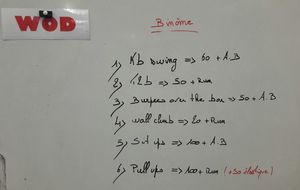 WOD
Binôme
1) Kb swing => 60 + A.B
2) => 50 + Run
3) Burpees over the box => 50 + A.B
4) wall climb => 20 + Run
5) Sit ups => 100 + A.B
6) Pull ups => 100 + Run (+30 élastique)